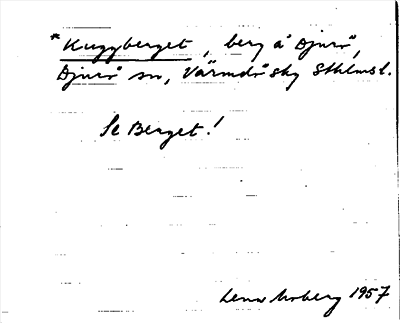 *Kuggberget, berg å Djurö,
Djurö sn, Värmdö skg Sthlmsl.
Se Berget!
Lena Moberg 1957